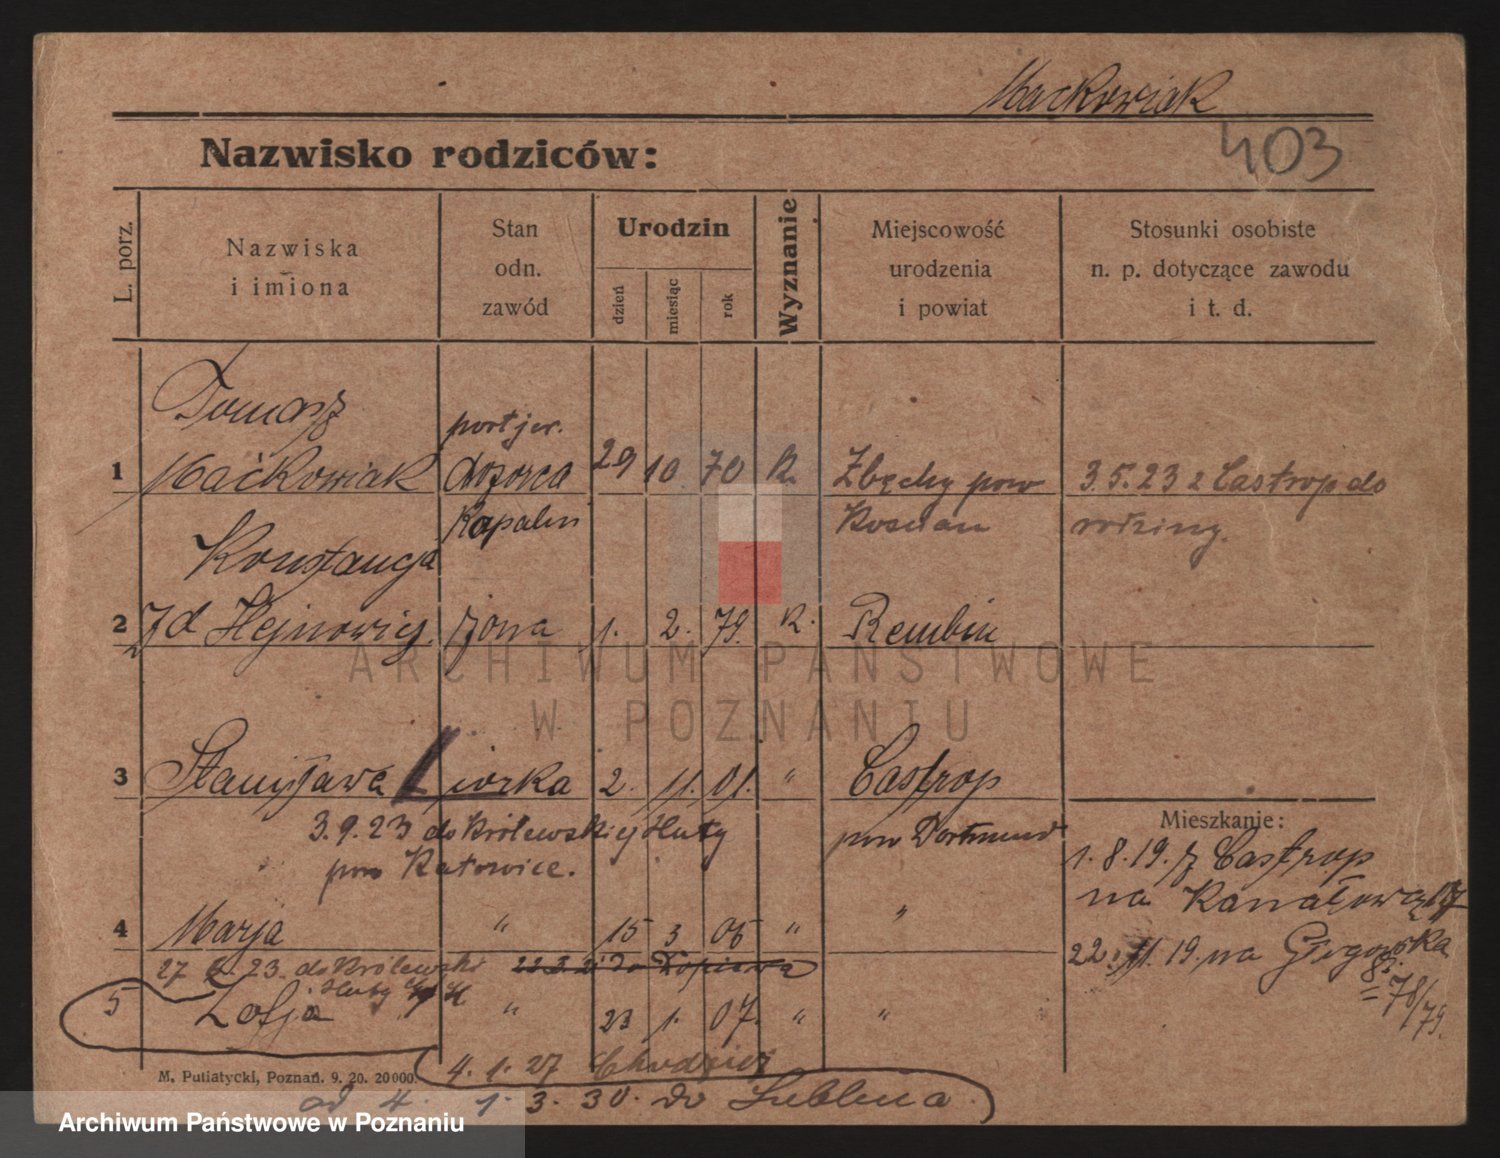 Maćkowiak
403
Nazwisko rodziców:
L. porz.
Nazwiska
i imiona
Stan
odn.
zawód
Urodzin
dzień
miesiąc
rok
Wyznanie
Miejscowość
urodzenia
i powiat
Stosunki osobiste
n. p. dotyczące zawodu
i t. d.
Tomasz
portjer.
1 Maćkowiak dozorca 29 10. 70 K. Zbęchy pow 3.5.23 z Castrop do
Kościan rodziny.
Konstancja
2 zd Hejnowicz. żona 1. 2. 79. K. Rembin
3 Stanisława 2. 11. 01. " Castrop
3.9.23 do Królewskiej Huty pow Dortmund
pow Katowice.
Mieszkanie:
1.8.19. z Castrop
na Kanałową 17
4 Marja " 15 3 05 " "
22. 11. 19. na Głogowska
78/79.
27 23. do Królewski 22.3. do Dopiewa
Huty
5 Zofja " 23 1. 07. " "
4. 1. 27 Chodzież
M. Putiatycki, Poznań. 9. 20. 20000.
od 4. 1. 3. 30. do Lublina
ARCHIWUM PAŃSTWOWE
W POZNANIU
Archiwum Państwowe w Poznaniu